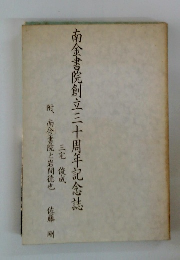 南金書院創立三十周年記念誌
三宅俊成
附、南金書院と岩間徳也
佐藤剛